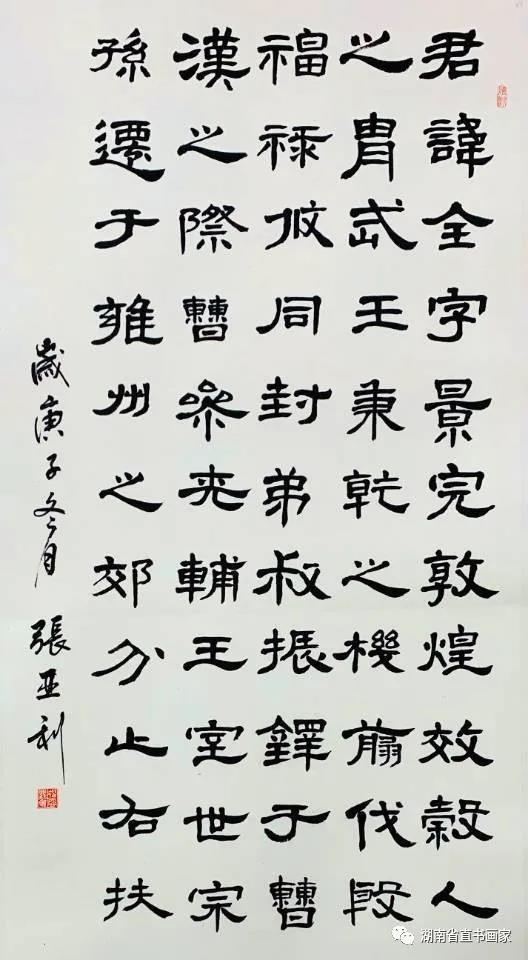 君諱全字景完敦煌效穀人
之胄武王秉乾之機翦伐殷
福祿攸同封弟叔振鐸于曹
漢之際曹參夾輔王室世宗
孫遷于雍州之郊分止右扶
歲庚子冬月 張亞利
湖南省直书画家